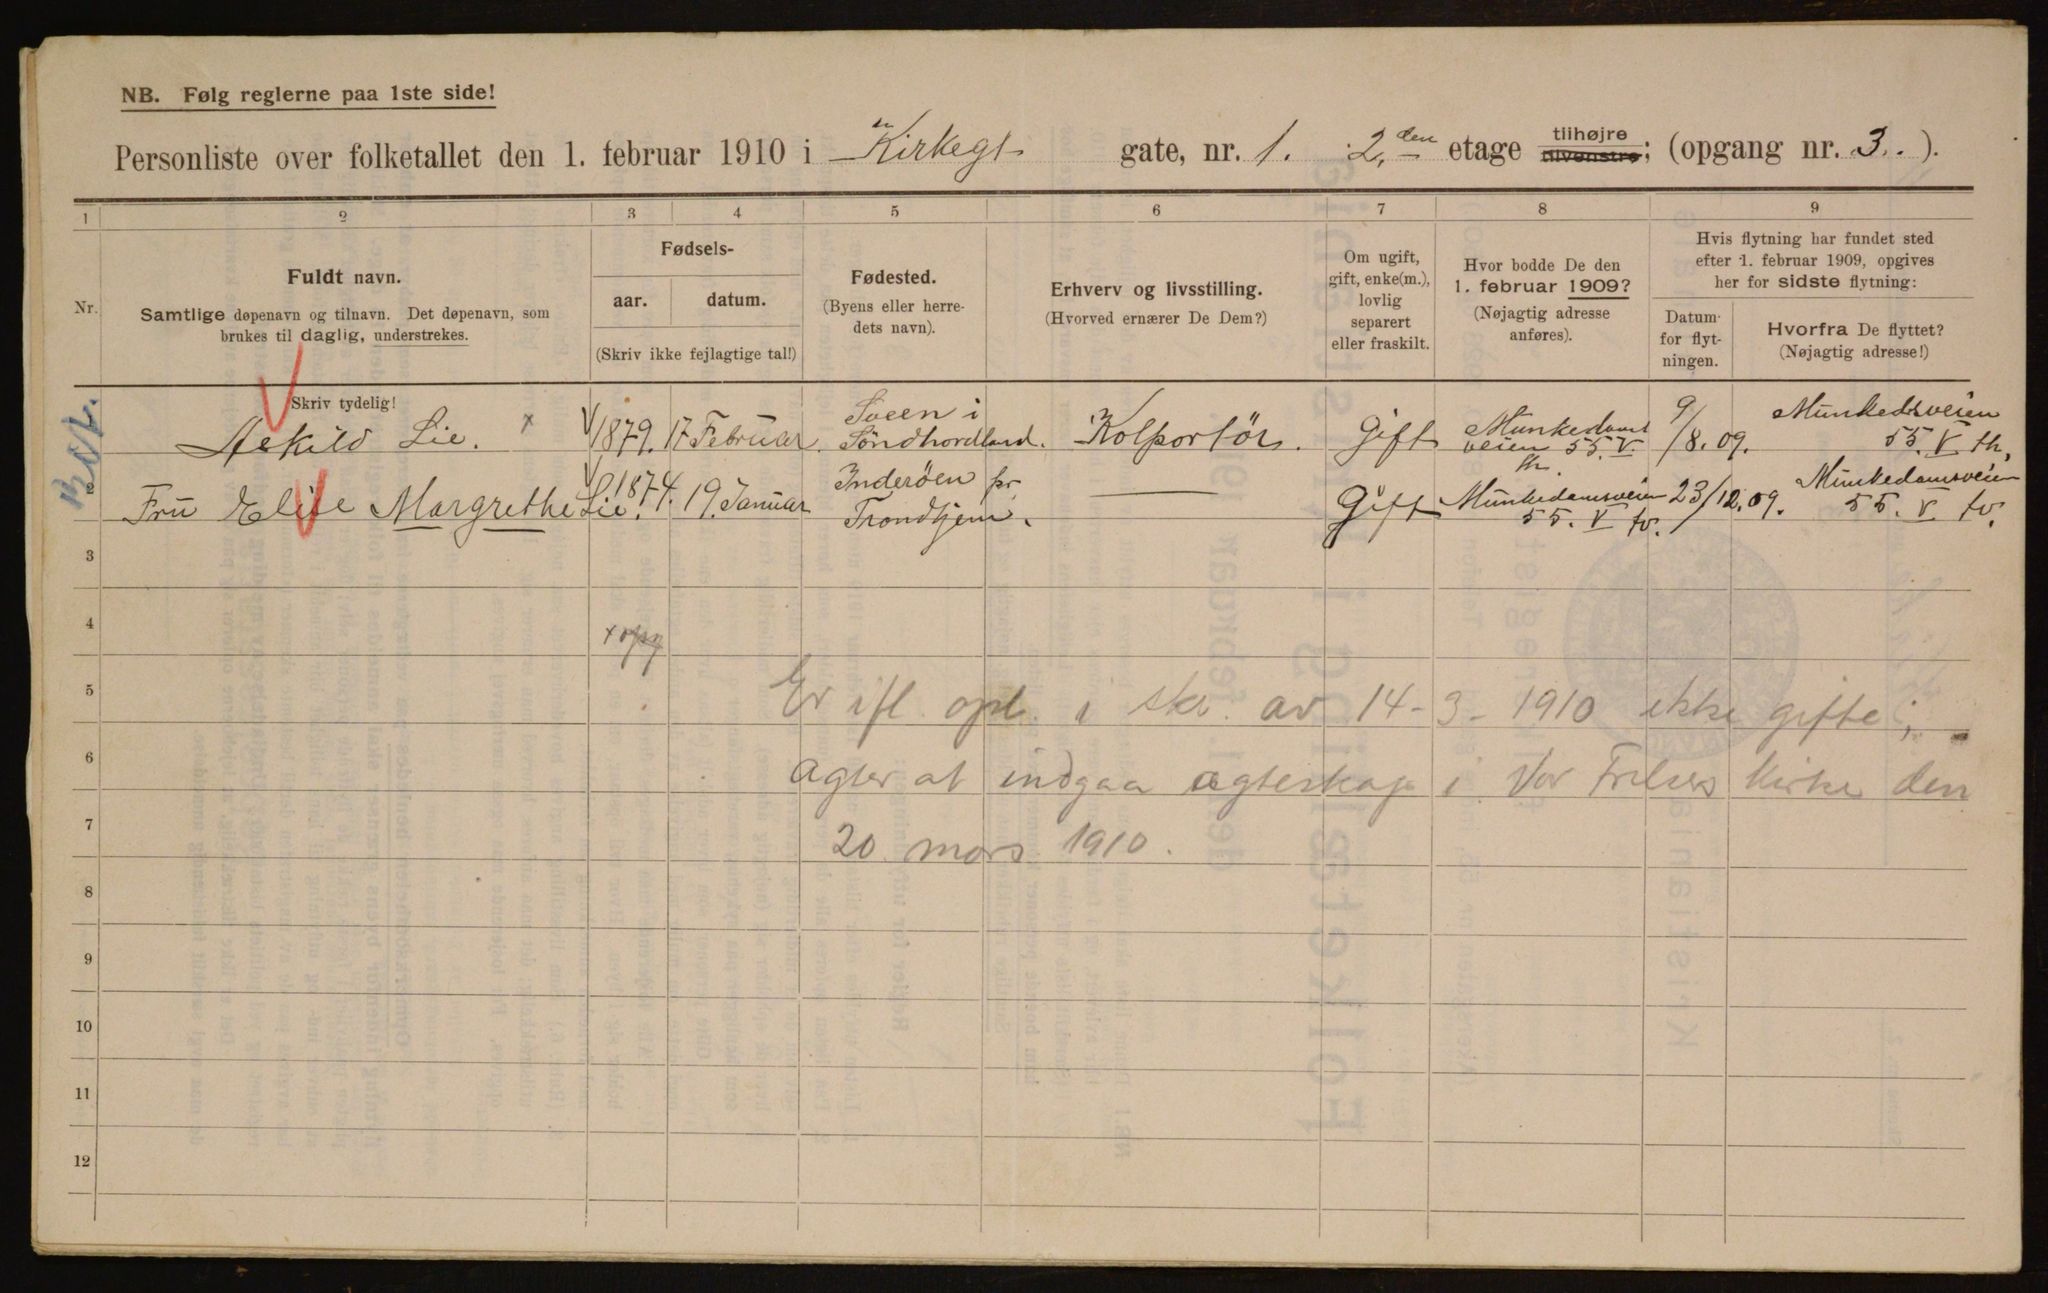 NB. Følg reglerne paa 1ste side!
Personliste over folketallet den 1. februar 1910 i Kirkegt gate, nr. 1. 2.den etage tilhøjre tilvenstre; (opgang nr. 3.).
1 2 3 4 5 6 7 8 9
Nr.
Fuldt navn.
Samtlige døpenavn og tilnavn. Det døpenavn, som
brukes til daglig, understrekes.
Skriv tydelig!
Fødsels-
aar. datum.
(Skriv ikke fejlagtige tal!)
Fødested.
(Byens eller herre-
dets navn).
Erhverv og livsstilling.
(Hvorved ernærer De Dem?)
Om ugift,
gift, enke(m.),
lovlig
separert
eller fraskilt.
Hvor bodde De den
1. februar 1909?
(Nøjagtig adresse
anføres).
Hvis flytning har fundet sted
efter 1. februar 1909, opgives
her for sidste flytning:
Datum
for flyt-
ningen.
Hvorfra De flyttet?
(Nøjagtig adresse!)
Askild Lie. x 1879. 17 Februar. Sveen i Söndhordland. Kolportör. Gift Munkedams veien 55. V. th. 9/8.09. Munkedsveien 55. V th,
2 Fru Elise Margrethe Lie. 1874. 19. Januar Inderöen pr Trondhjem. Gift Munkedamsveien 55. V tv. 23/12.09. Munkedamsveien 55. V tv.
3
4
x opg
5 Er ifl. opl. i skr. av 14-3-1910 ikke gifte;
6 agter at indgaa egteskap i Vor Frelsers kirke den
7 20 mars 1910.
8
9
10
11
12